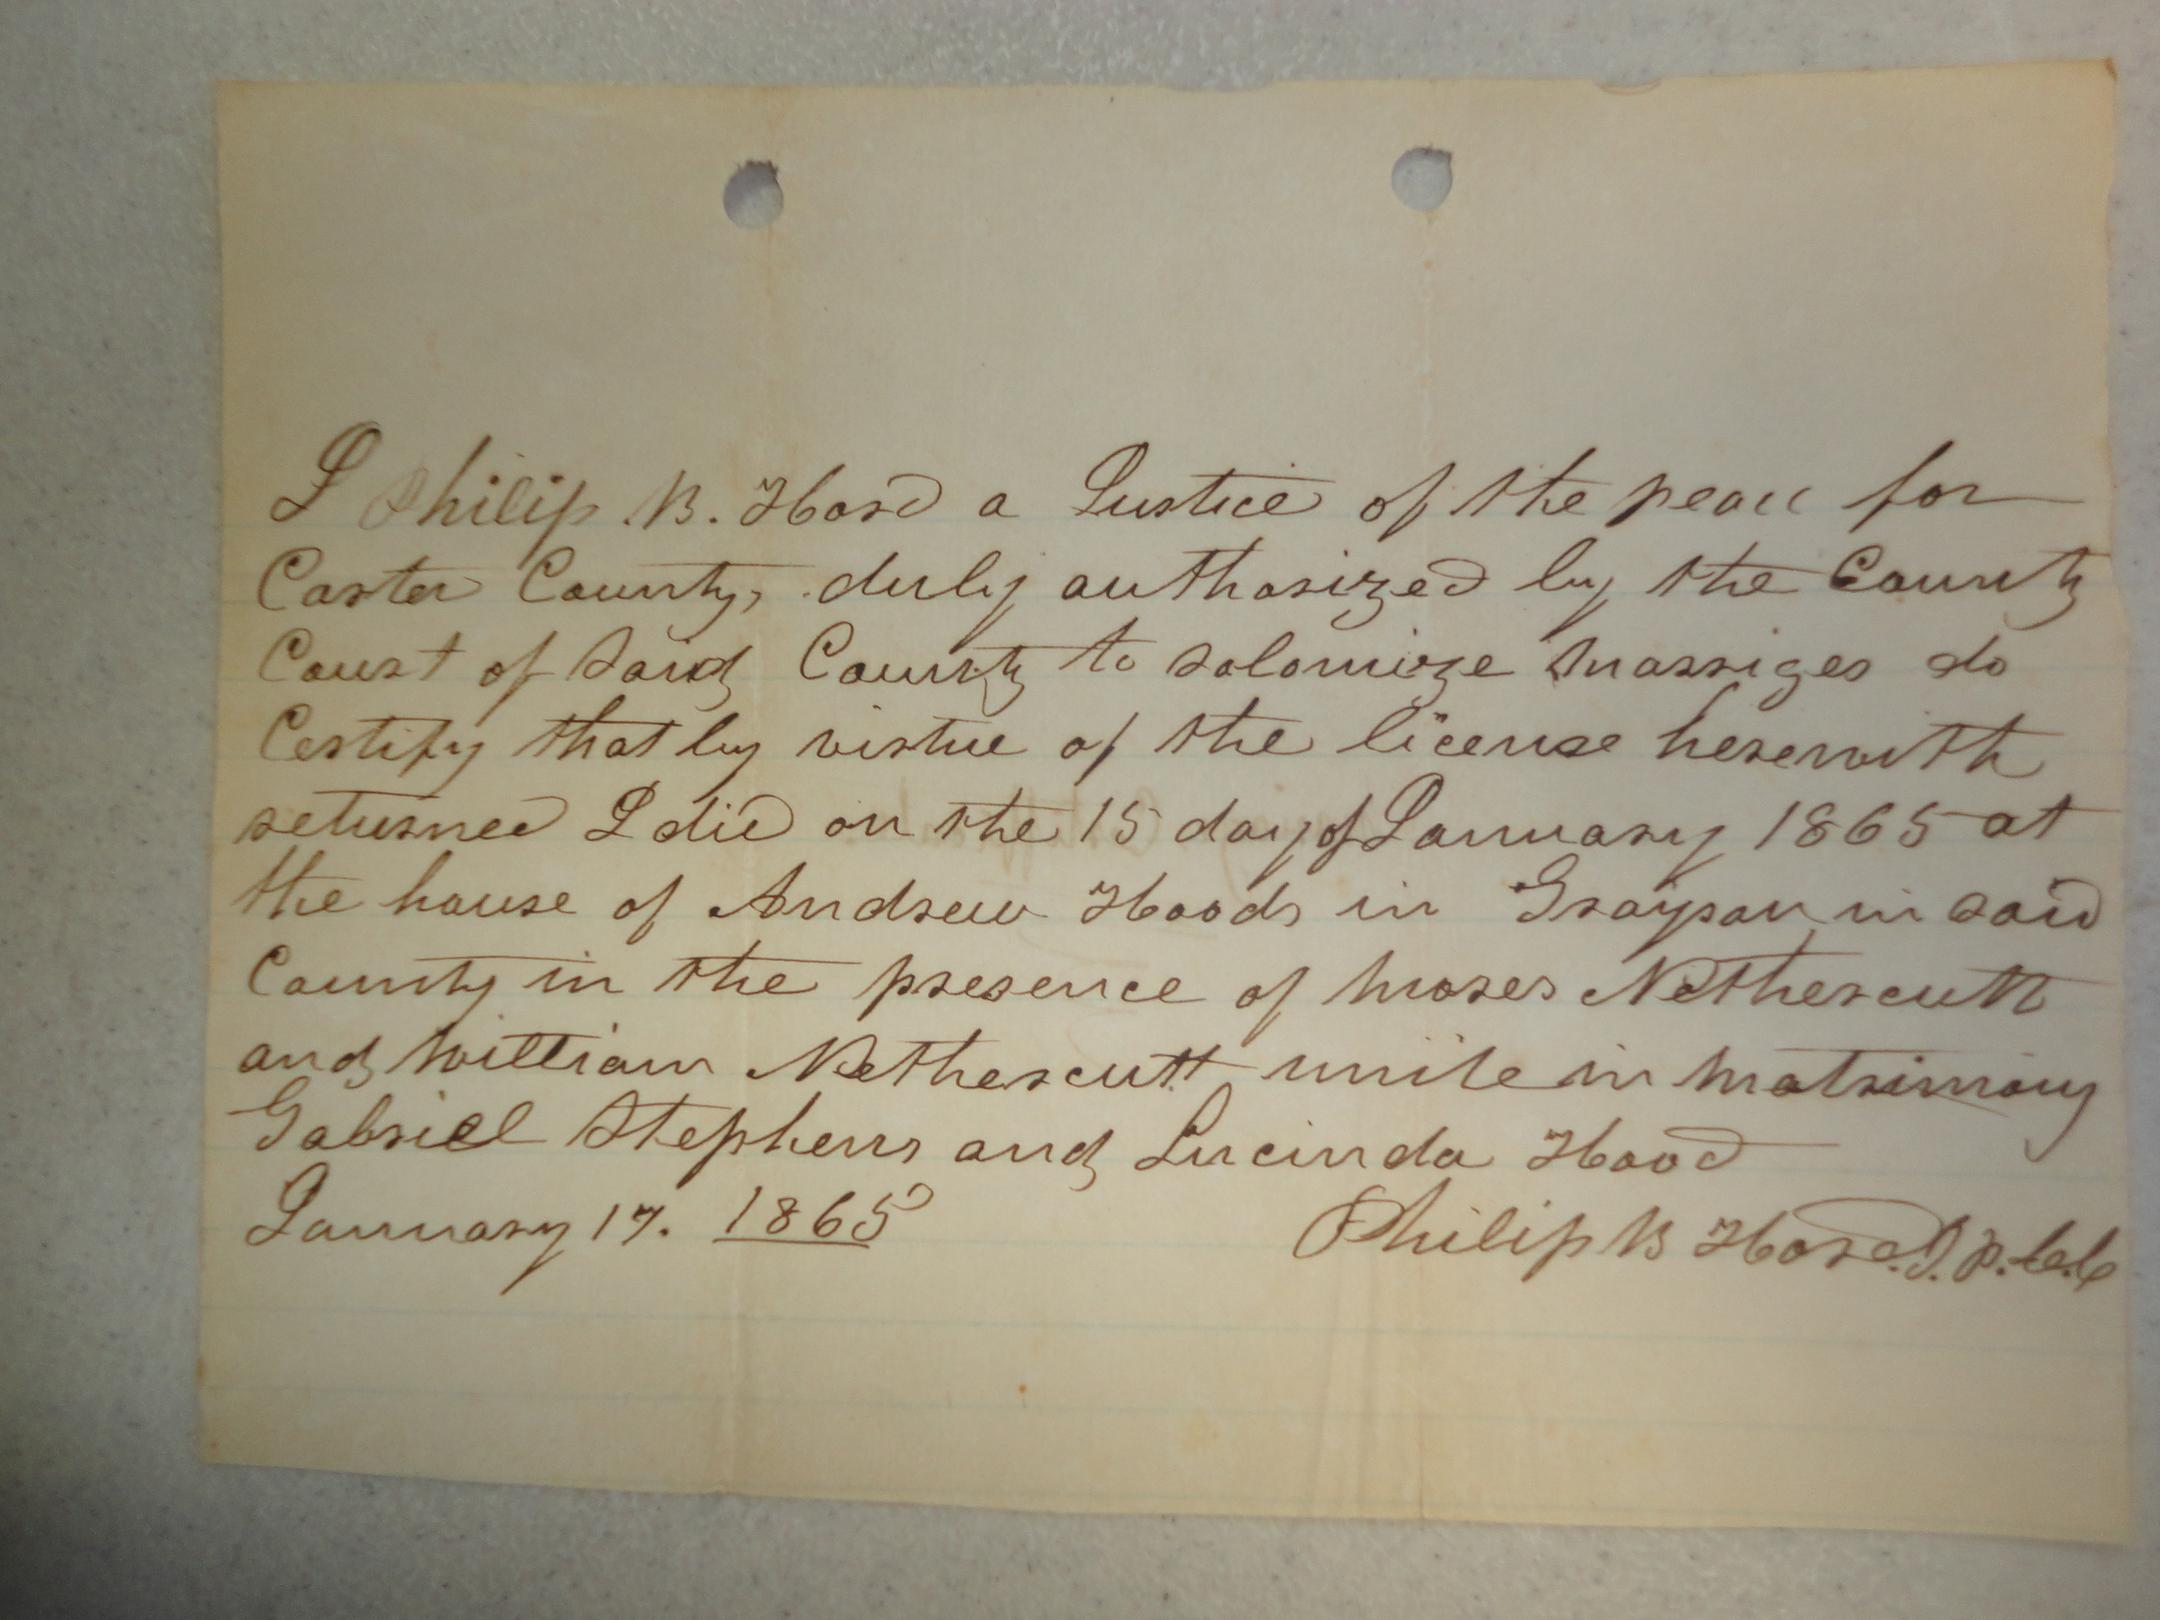 I Philip B. Hord a Justice of the peace for
Carter County, duly authorized by the County
Court of Said County to solomize marriges do
Certify that by virtue of the license herewith
returned I did on the 15 day of January 1865 at
the house of Andrew Hoods in Grayson in said
County in the presence of Moses Nethercutt
and William Nethercutt unite in matrimony
Gabriel Stephens and Lucinda Hood
January 17. 1865
Philip B Hord. J. P. C. C